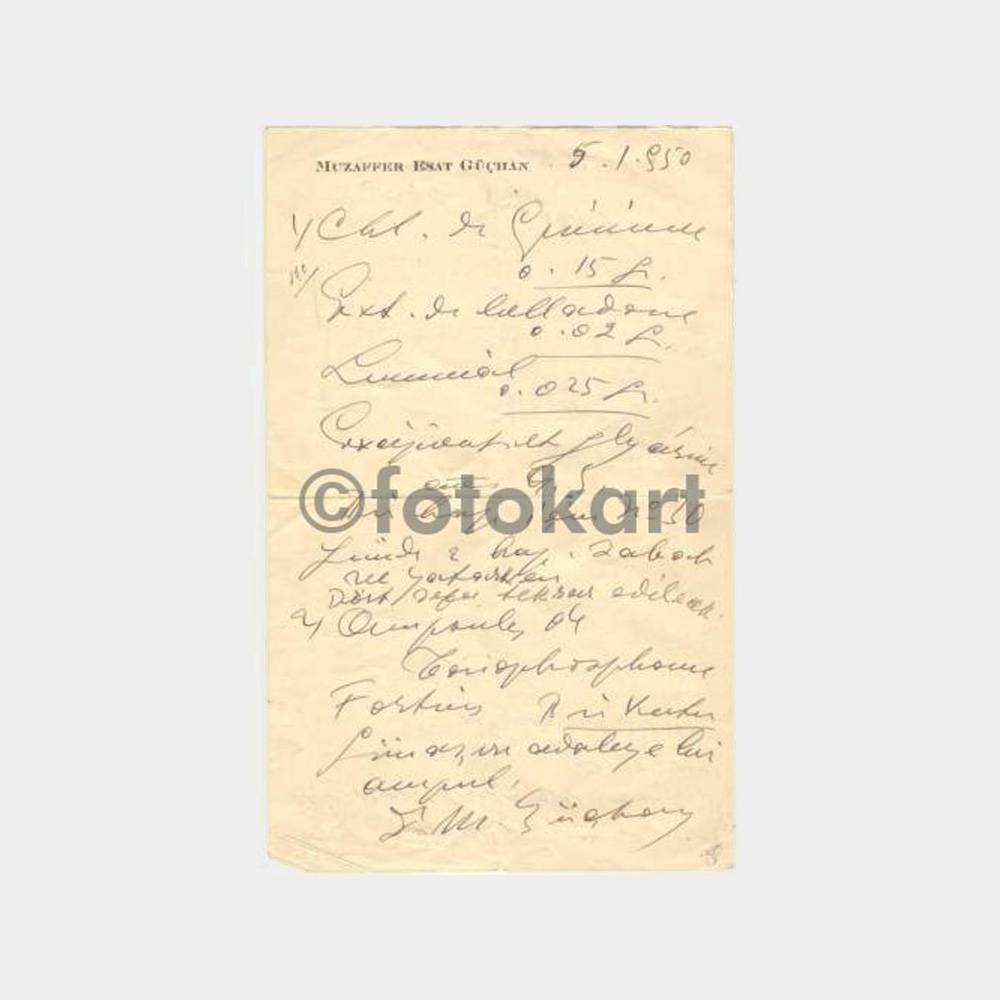 MUZAFFER ESAT GÜÇHAN
5.1.950
1/ Chl. de Quinine
0.15 gr.
Ext. de belladone
0.02 gr.
Luminal
0.025 gr.
Excipient et glycérine
q.s.
©fotokart
No 50
Günde 2 hap. Sabah
ve yatarken
Dört defa tekrar edilecek.
2/ Ampoules de
Tonophosphane
Fortius Bir kutu
Gün aşırı adaleye bir
ampul.
Dr M. Güçhan